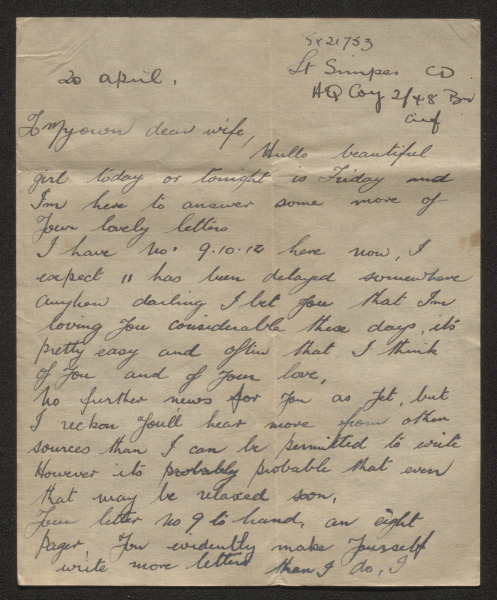 SX21753
Lt Simper CD
HQ Coy 2/48 Bn
AIF
20 April.
To My own dear wife,
Hullo beautiful
girl today or tonight is Friday and
I'm here to answer some more of
Your lovely letters
I have no. 9.10.12 here now, I
expect 11 has been delayed somewhere
anyhow darling I bet you that I'm
loving You considerable these days, its
pretty easy and often that I think
of You and of Your love,
No further news for You as yet, but
I reckon You'll hear more from other
sources than I can be permitted to write
However its probably probable that even
that may be relaxed soon,
Your letter no 9 to hand, an eight
pager, You evidently make Yourself
write more letters than I do, I